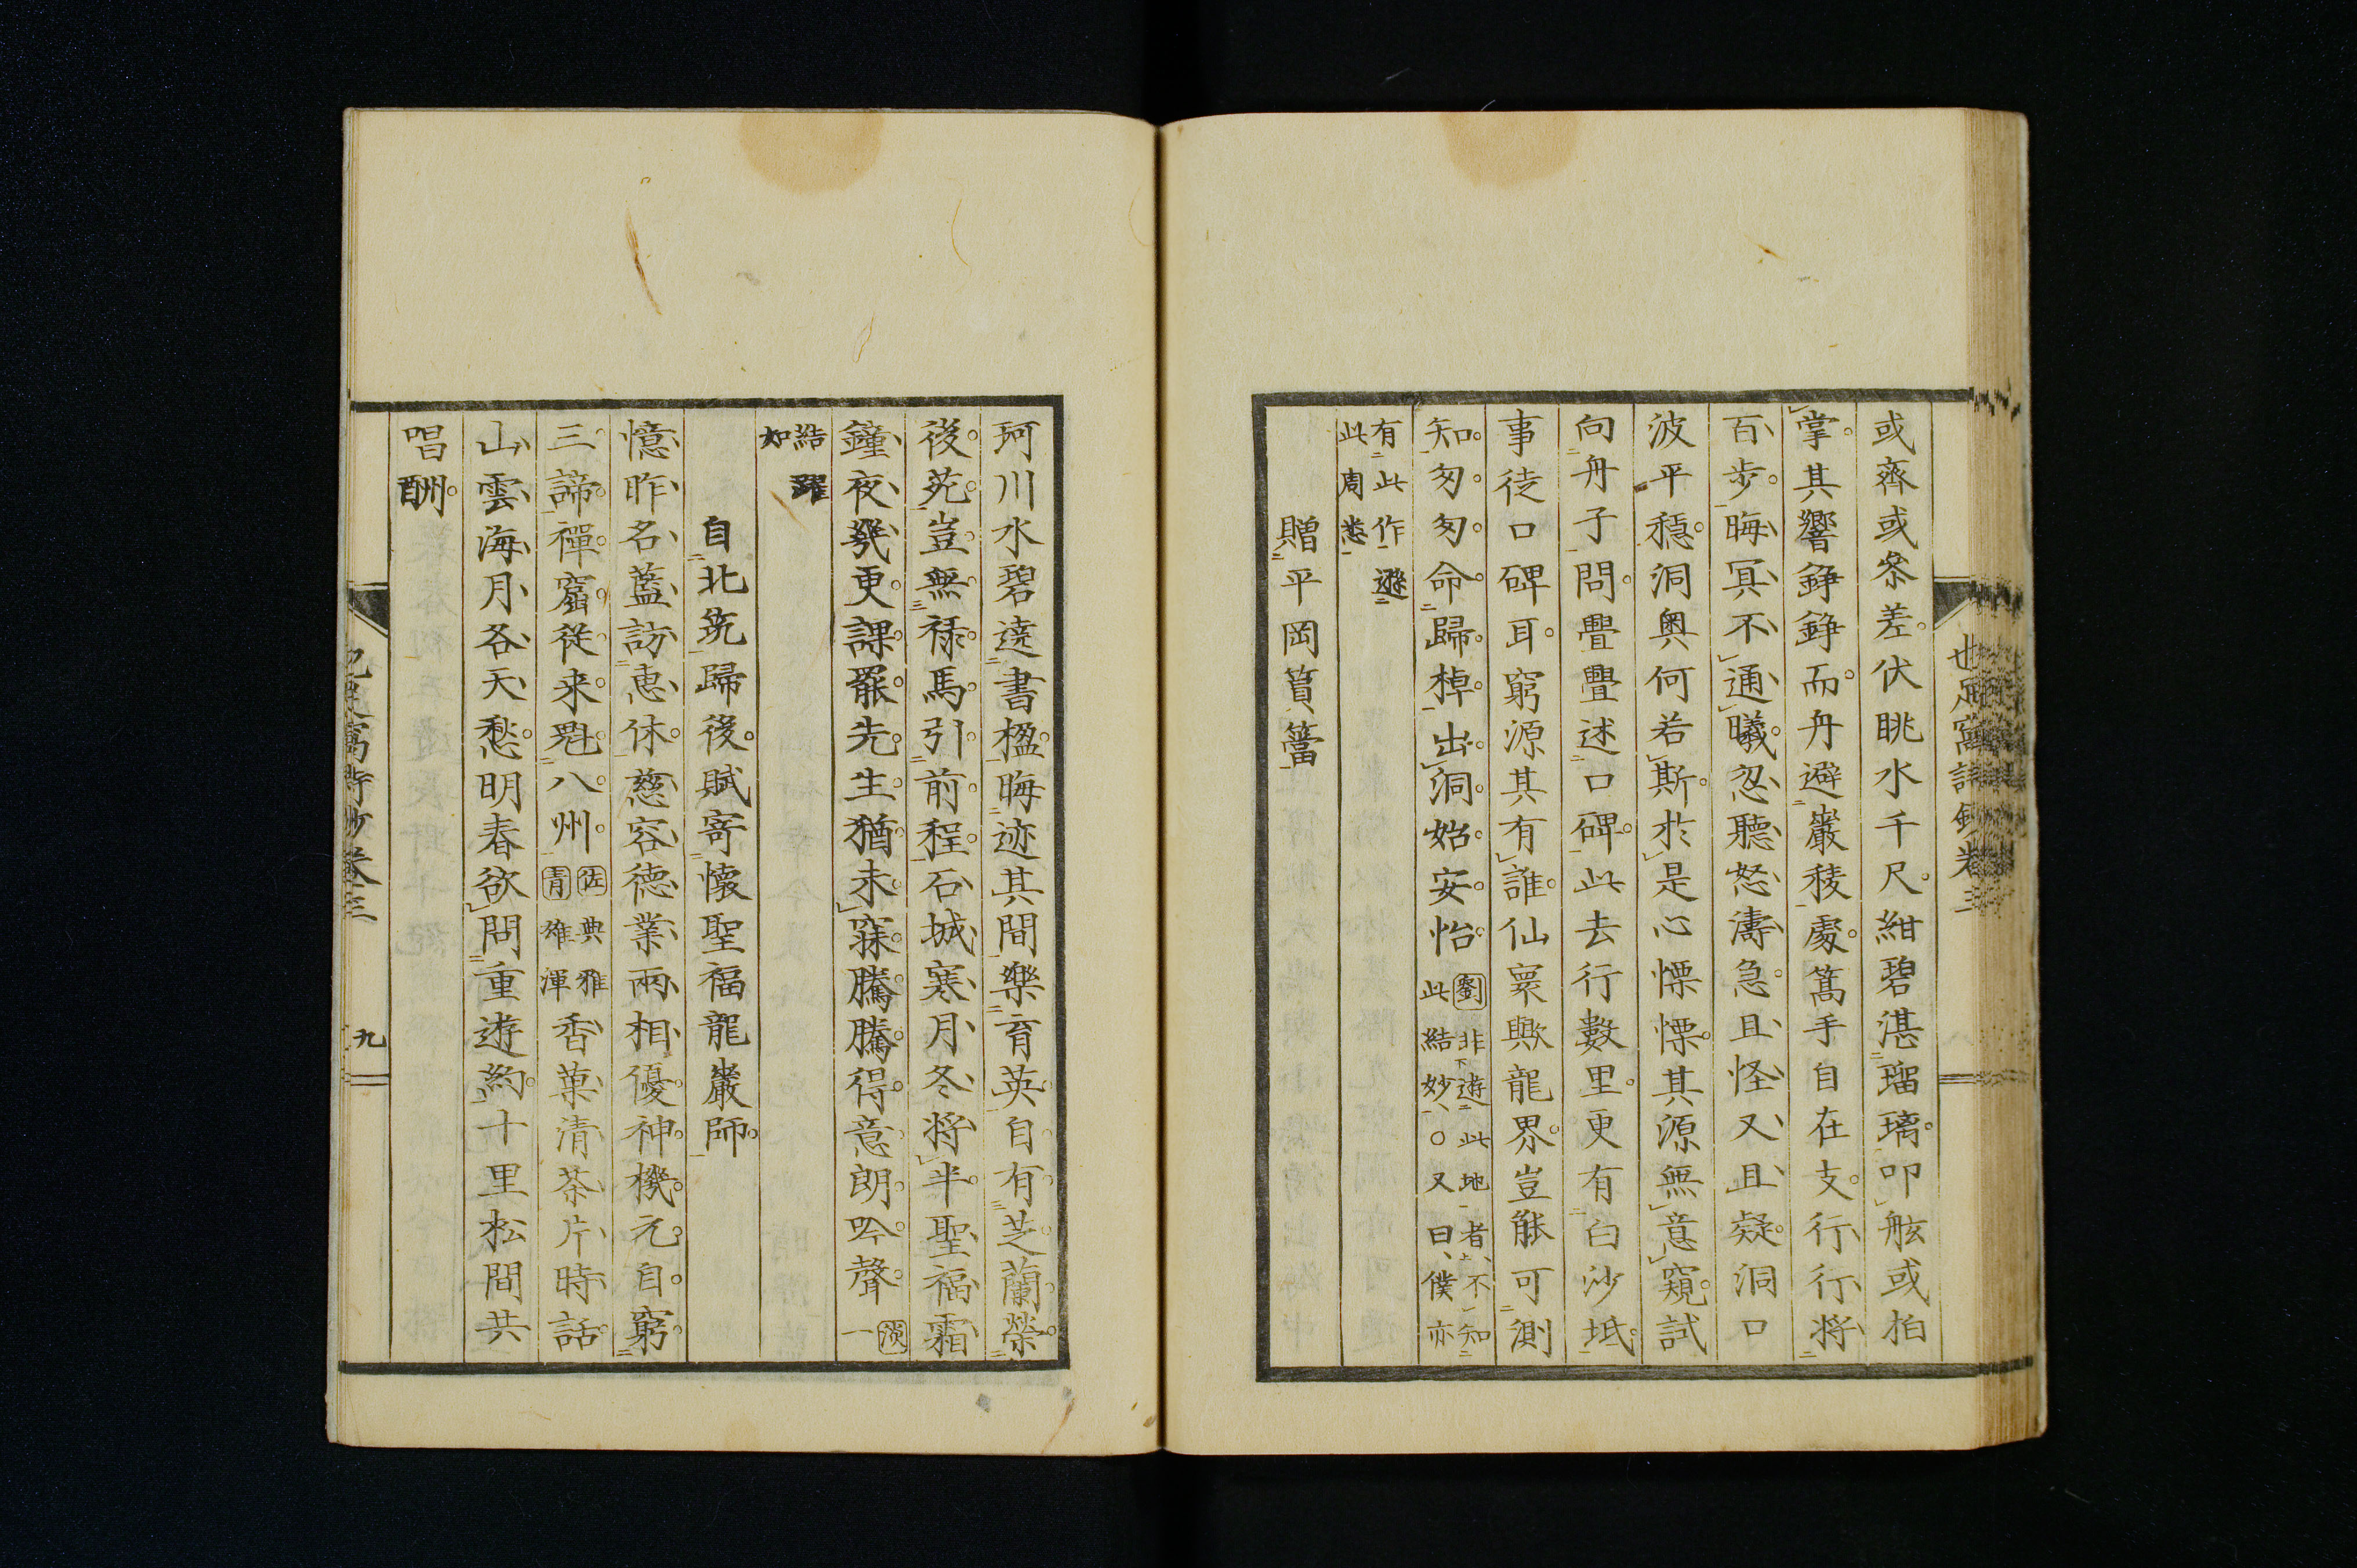 或齊或參差伏眺水千尺紺碧湛瑠璃叩舷或拍
掌其響錚錚而舟避巖稜處篙手自在支行行將
百步晦冥不通曦忽聽怒濤急且怪又且疑洞口
波平穩洞奥何若斯於是心慄慄其源無意窺試
向舟子問疊疊述口碑此去行數里更有白沙坻
事徒口碑耳窮源其有誰仙寰歟龍界豈能可測
知匆匆命歸棹出洞始安怡
劉非遊此地者不知
此結妙○又曰僕亦
有此作遜
此周悉
贈平岡篔簹
珂川水碧遶書楹晦迹其間樂育英自有芝蘭榮
後苑豈無祿馬引前程石城寒月冬將半聖福霜
鐘夜發更課罷先生猶未寐騰騰得意朗吟聲
淡一
結躍
如
自北筑歸後賦寄懷聖福龍巖師
憶昨名藍訪惠休慈容德業兩相優神機元自窮
三諦禪窟從來冠八州
佐典雅
青雄渾
香菓清茶片時話
山雲海月各天愁明春欲問重遊約十里松間共
唱酬
也足窩詩鈔卷三
九